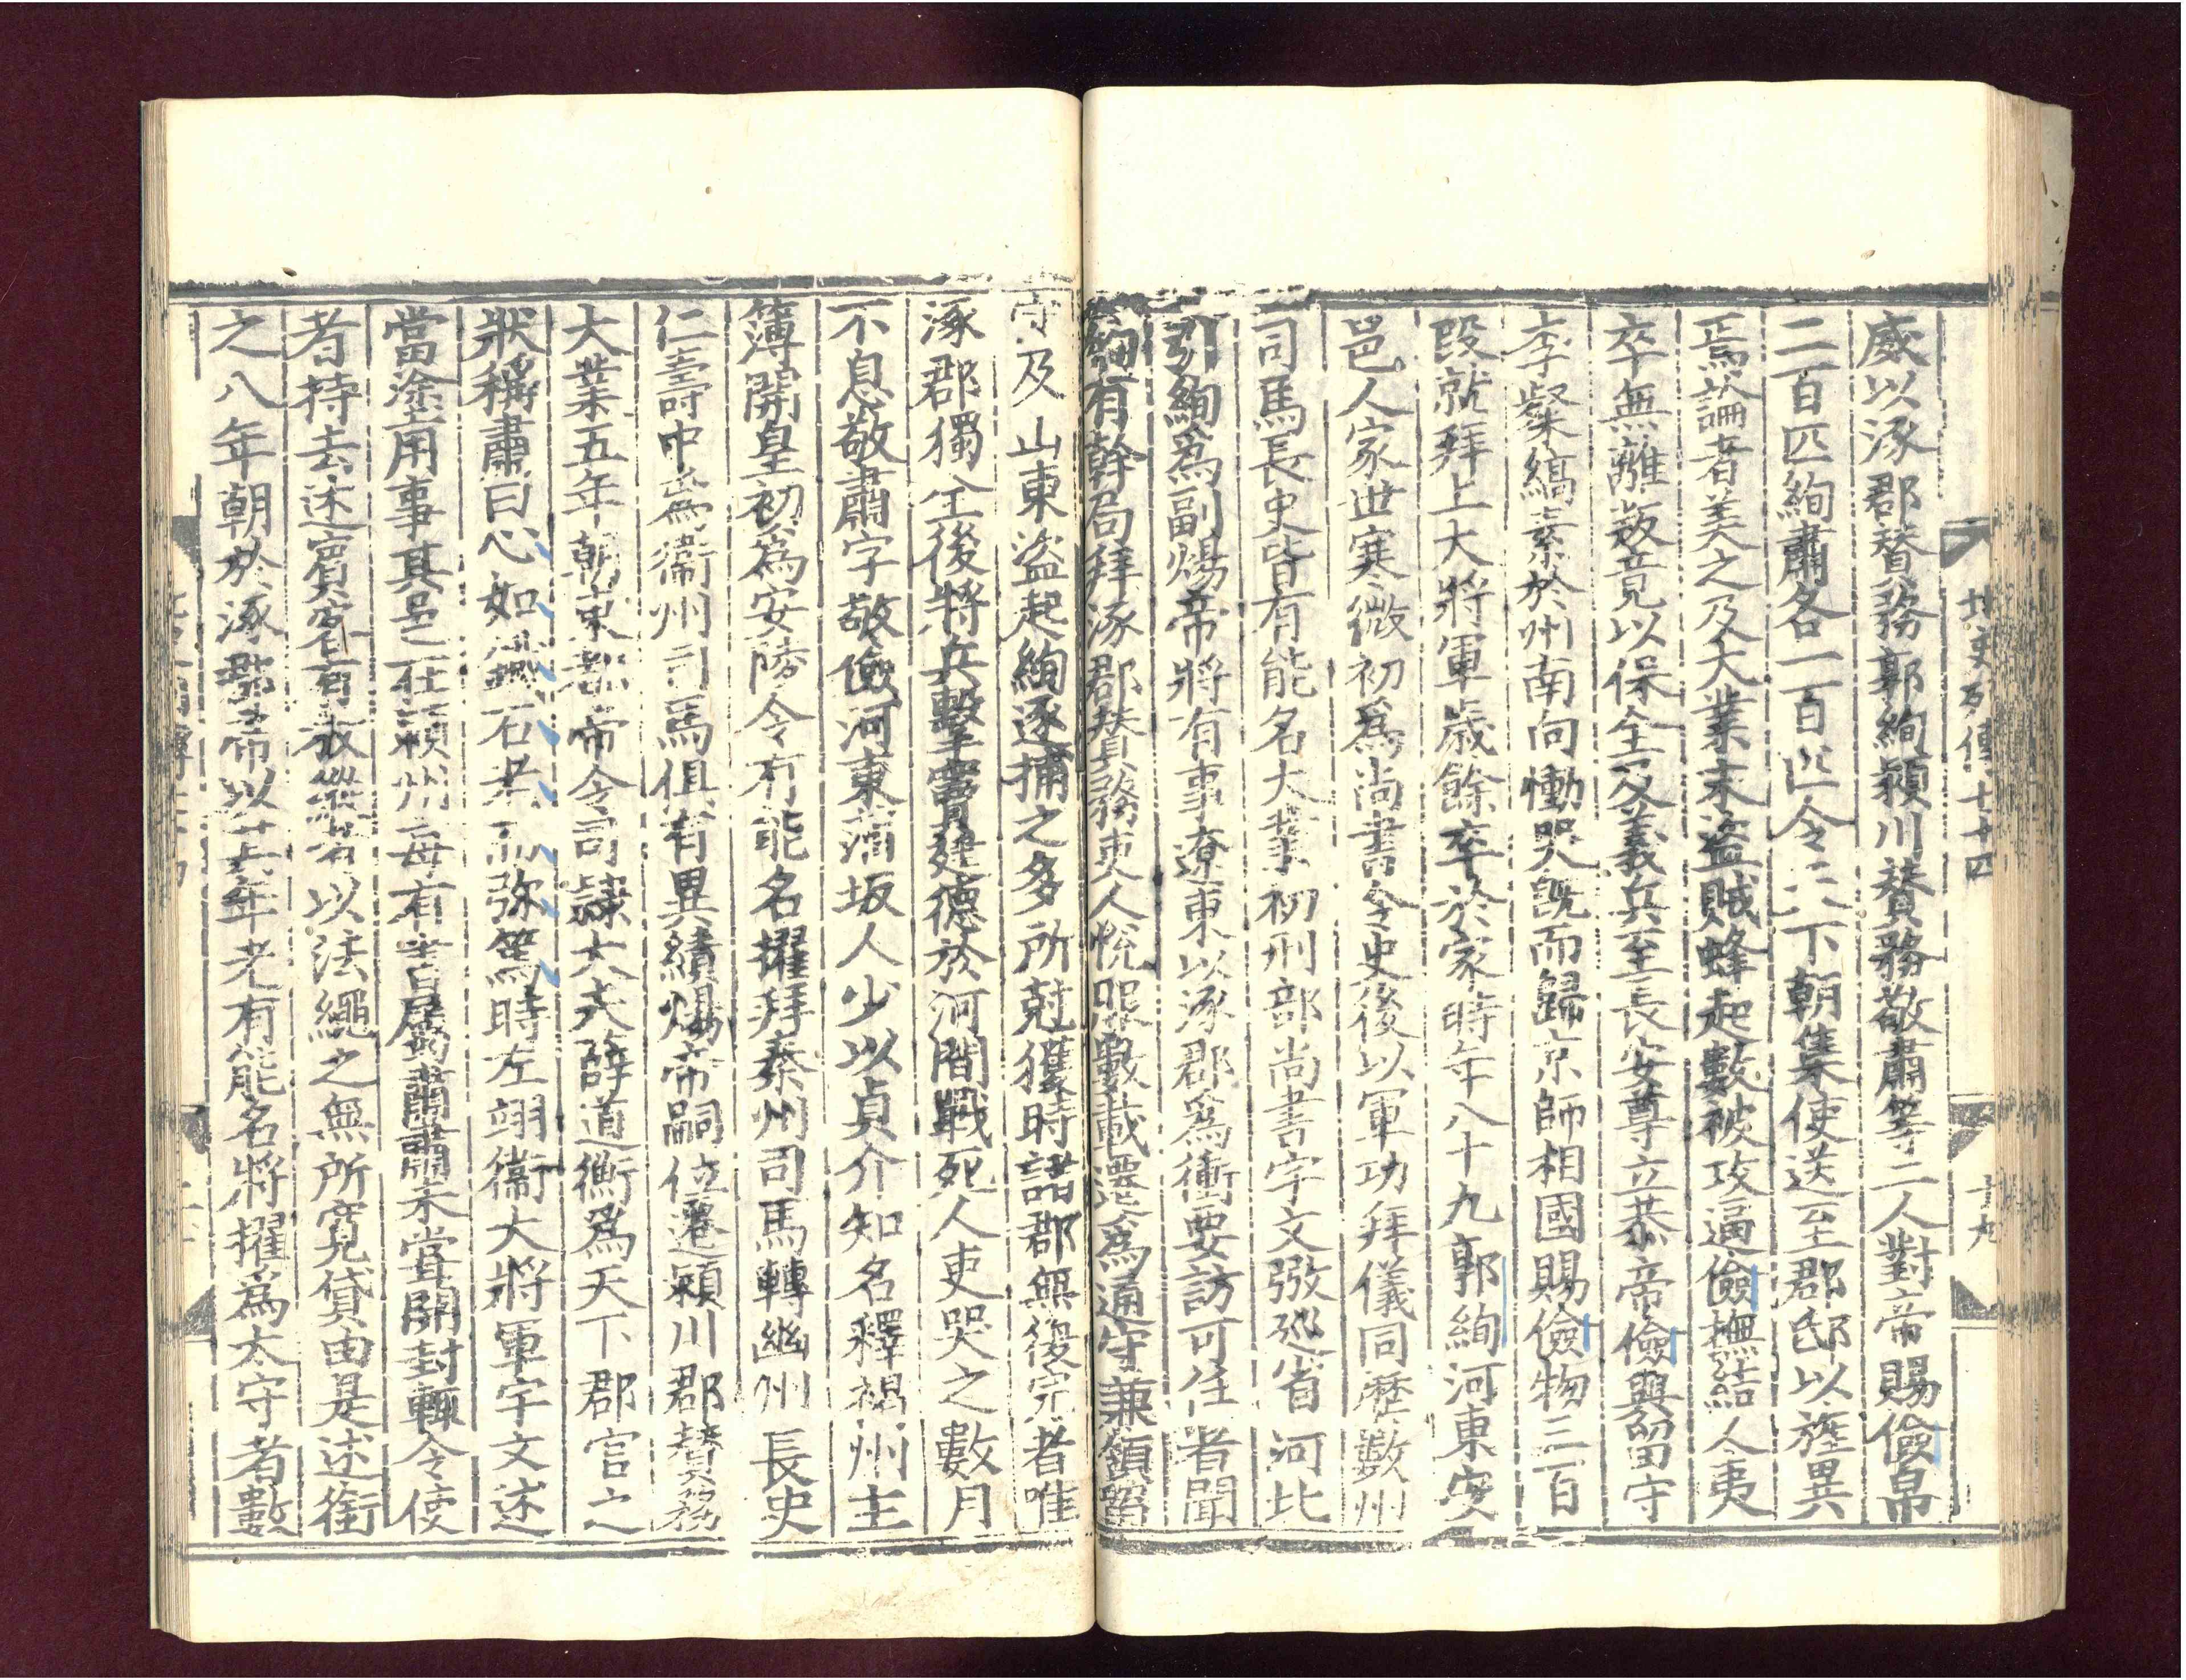 威以涿郡賛務郭絢潁川賛務敬肅等二人對帝賜儉帛
二百匹絢肅各一百匹令天下朝集使送至郡邸以旌異
焉論者美之及大業末盜賊蜂起數被攻逼儉撫結人夷
卒無離叛竟以保全及義兵至長安尊立恭帝儉與留守
李粲縞素於州南向慟哭旣而歸京師相國賜儉物三百
段就拜上大將軍歳餘卒於家時年八十九郭絢河東安
邑人家世寒微初爲尚書令史後以軍功拜儀同歷數州
司馬長史皆有能名大業初刑部尚書宇文弼巡省河北
引絢爲副煬帝將有事遼東以涿郡爲衝要訪可任者聞
絢有幹局拜涿郡賛務吏人悅服數載遷爲通守兼領留
守及山東盜起絢逐捕之多所尅獲時諸郡無復完者唯
涿郡獨全後將兵擊竇建德於河間戰死人吏哭之數月
不息敬肅字敬儉河東蒲坂人少以貞介知名釋褐州主
簿開皇初爲安陵令有能名擢拜秦州司馬轉幽州長史
仁壽中爲衞州司馬俱有異績煬帝嗣位遷潁川郡賛務
大業五年朝東都帝令司隸大夫薛道衡爲天下郡官之
狀稱肅曰心如鐵石老而弥篤時左翊衞大將軍宇文述
當塗用事其邑在潁川每有書屬肅肅未嘗開封輒令使
者持去述賓客有放縱者以法繩之無所寛貸由是述銜
之八年朝於涿郡帝以其年老有能名將擢爲太守者數
北史列傳七十四
十九